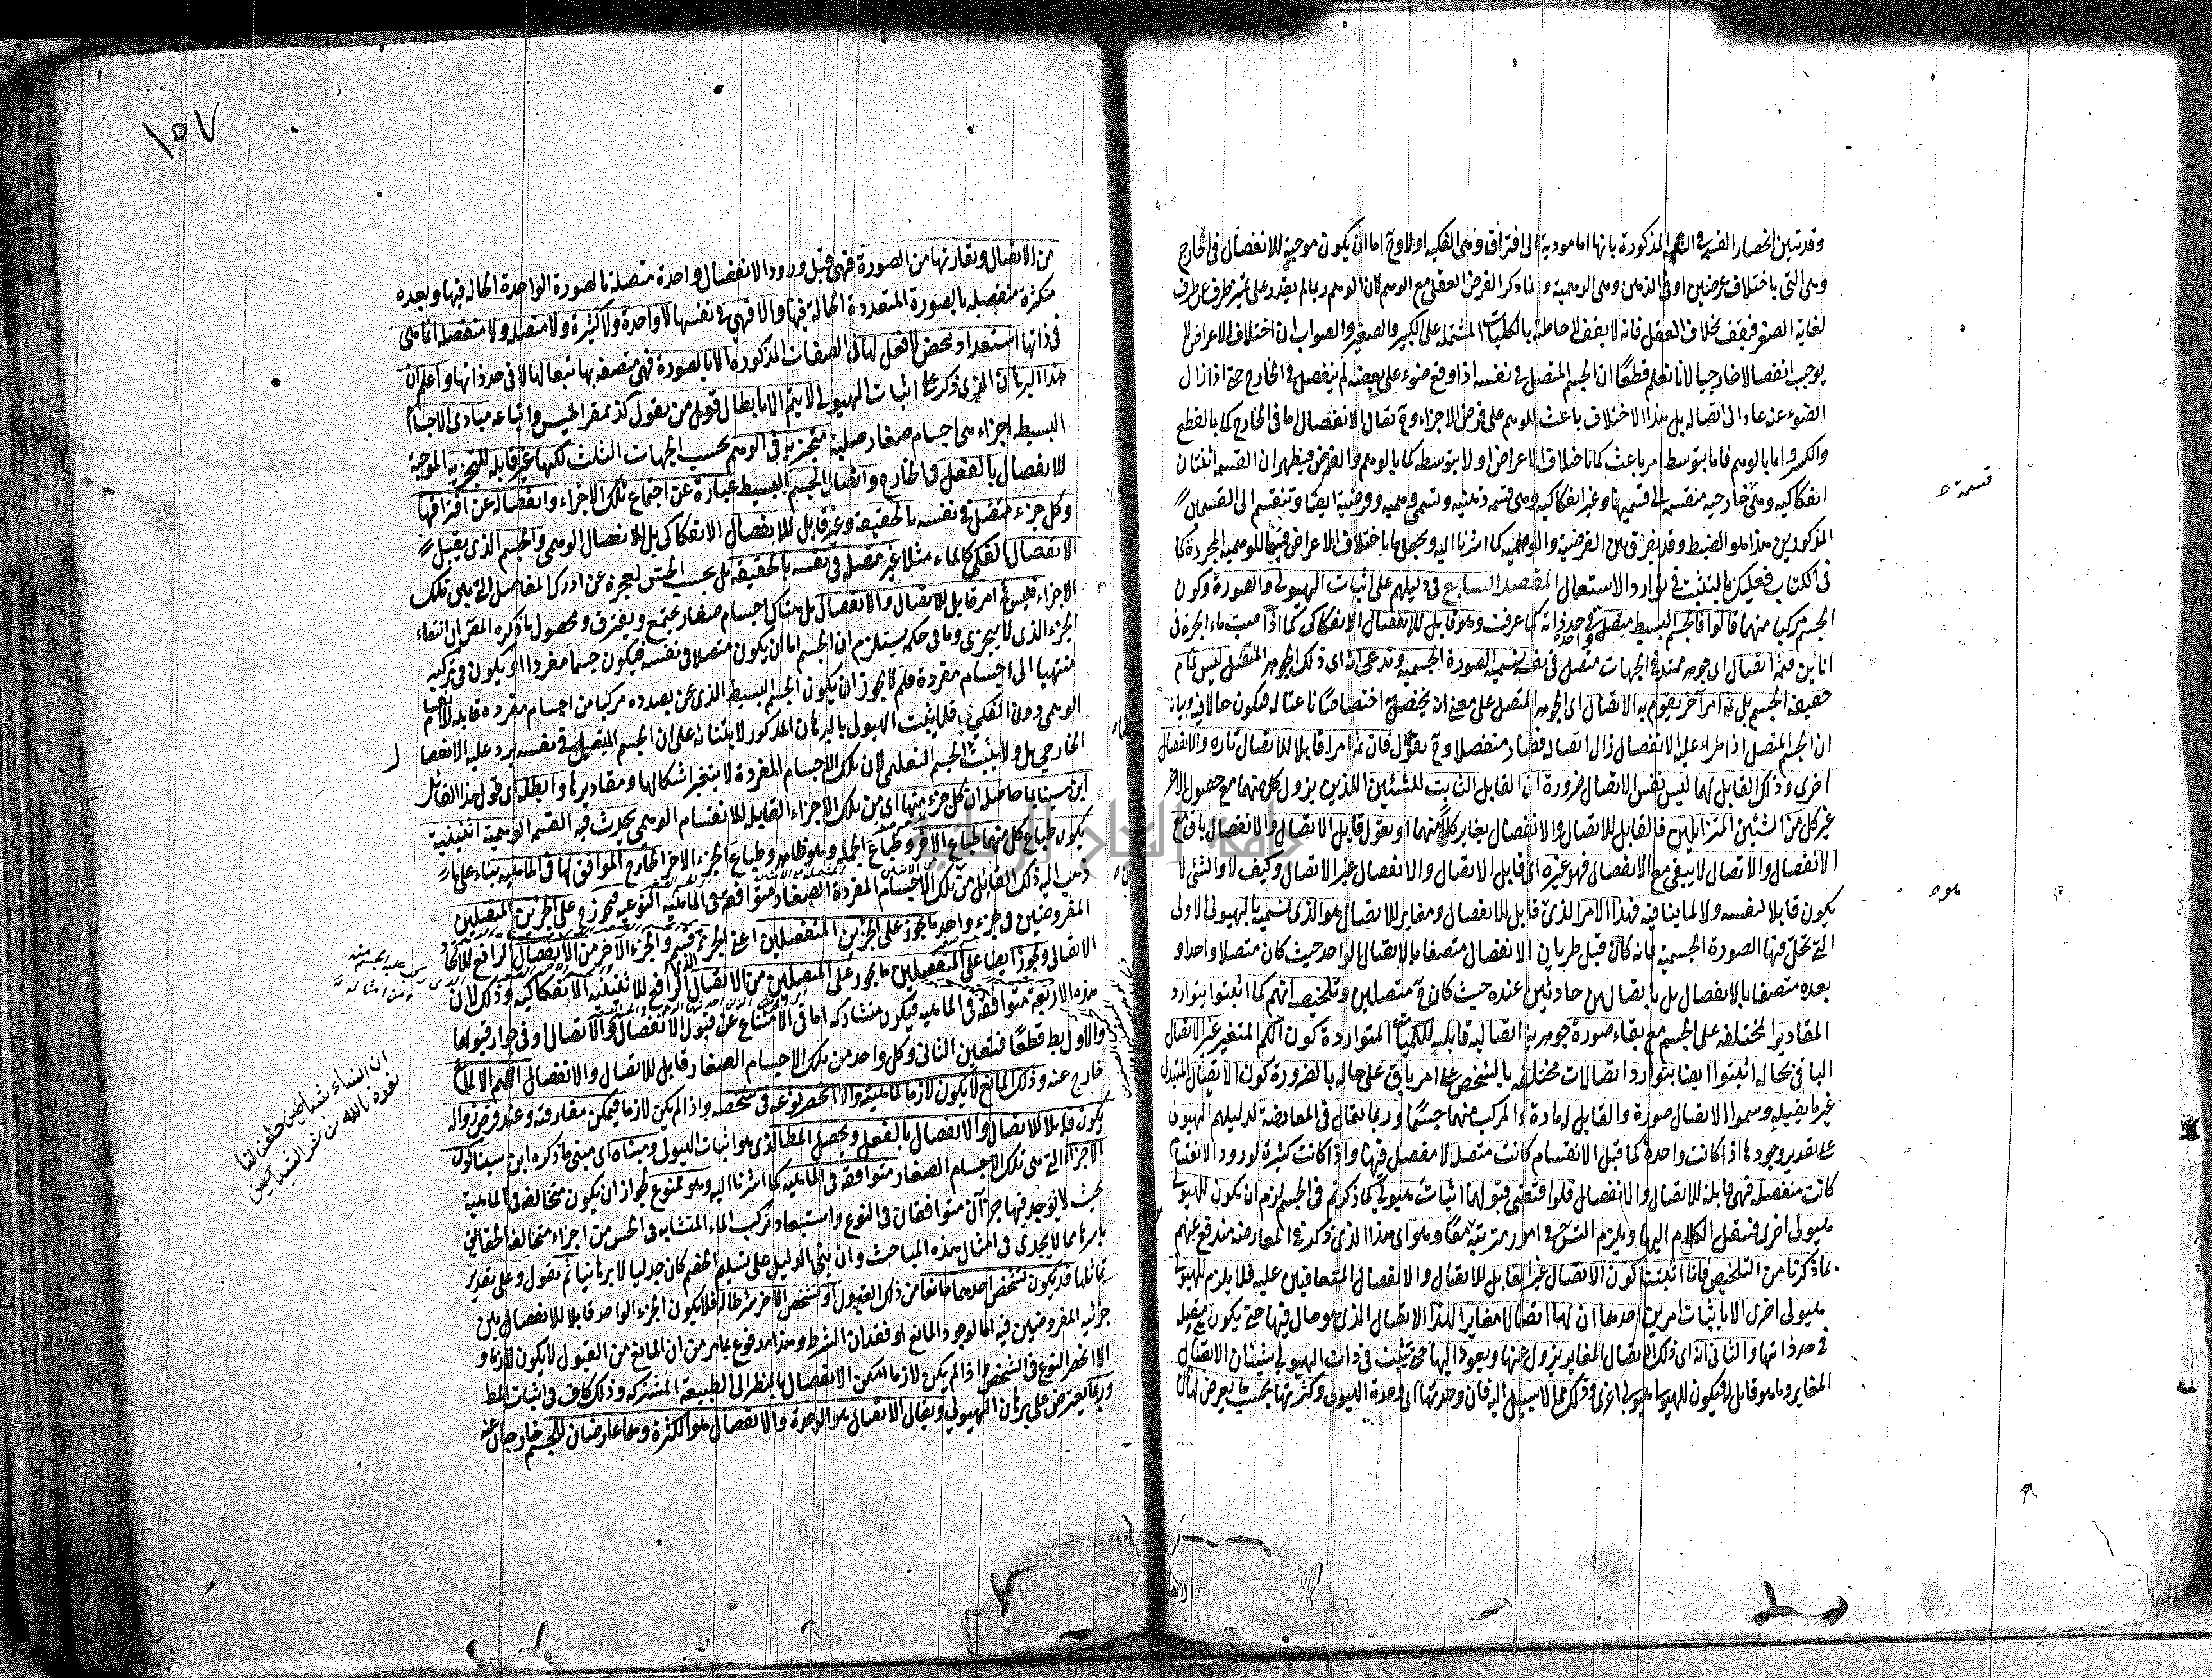 وقد تبين انحصار القسمة في الثلث المذكورة بانها اما مودية الى افتراق وهي الفكية اولا وح اما ان يكون موجبة للانفصال في الخارج
وهي التي باختلاف عرضين او في الذهن وهي الوهمية و انما ذكر الفرض العقلي مع الوهم لان الوهم ربما لم يقدر على تمييز طرف عن طرف
لغاية الصغر فيقف بخلاف العقل فانه لا يقف لاحاطته بالكليات المشتملة على الكبير والصغير والصواب ان اختلاف الاعراض لا
يوجب انفصالا خارجيا لانا نعلم قطعا ان الجسم المتصل في نفسه اذا وقع ضوء على بعضه لم ينفصل في الخارج حتى اذا زال
الضوء عنه عاد الى اتصاله بل هذا الاختلاف باعث للوهم على فرض الاجزاء وح نقال الانفصال اما في الخارج كما بالقطع
والكسر واما بالوهم فاما بتوسط امر باعث كما باختلاف الاعراض اولا بتوسطه كما بالوهم والفرض فيظهر ان القسمة اثنتان
انفكاكية وهي خارجية منقسمة الى قسميها وغير انفكاكية وهي قسمة ذهنية وتسمى وهمية وفرضية ايضا وتنقسم الى القسمان
المذكورين هذا هو الضبط وقد يفرق بين الفرضية والوهمية كما اشرنا اليه ويجعل ما باختلاف الاعراض قسيما للوهمية المجردة كما
في الكتاب فعليك بالتثبت في موارد الاستعمال المقصد السابع في دليلهم على اثبات الهيولى والصورة وكون
الجسم مركبا منهما قالوا فالجسم البسيط متصل واحد في حد ذاته كما عرفت وهو قابل للانفصال الانفكاكي كما اذا صب ماء الجرة في
انائين فثمة اتصال اى جوهر ممتد في الجهات متصل في نفسه نسميه الصورة الجسمية وندعى انه اى ذلك الجوهر المتصل ليس تمام
حقيقة الجسم بل ثمة امر آخر يقوم به الاتصال اى الجوهر المتصل على معنى انه يختص به اختصاصا ناعتا له فيكون حالا فيه وبيانه
ان الجسم المتصل اذا طراء عليه الانفصال زال اتصاله فصار منفصلا وح نقول فان ثمة امرا قابلا للاتصال تارة والانفصال
اخرى وذلك القابل لهما ليس نفس الاتصال ضرورة ان القابل الثابت للشيئين اللذين يزول كل منهما مع حصول الآخر
غير كل من الشيئين المتزايلين فالقابل للاتصال والانفصال يغاير كلا منهما او نقول قابل الاتصال والانفصال باق مع
الانفصال والاتصال لا يبقى مع الانفصال فهو غيره اى قابل الاتصال والانفصال غير الاتصال وكيف لا والشئ لا
يكون قابلا لنفسه ولا لما ينافيه فهذا الامر الذى قابل للانفصال ومغاير للاتصال هو الذى نسميه بالهيولى الاولى
التي تحل فيها الصورة الجسمية فانه كان قبل طريان الانفصال متصفا بالاتصال الواحد حيث كان متصلا واحدا و
بعده متصفا بالانفصال بل باتصالين حادثين عنده حيث كان ح متصلين وتلخيصه انهم كما اثبتوا بتوارد
المقادير المختلفة على الجسم مع بقاء صورة جوهرية اتصالية قابلة للكميات المتواردة كون الكم المتغير غير الاتصال
الباقي بحاله اثبتوا ايضا بتوارد اتصالات مختلفة بالشخص على امر باق على حاله بالضرورة كون الاتصال المتبدل
غير ما يقبله وسموا الاتصال صورة والقابل له مادة والمركب منهما جسما وربما يقال في المعارضة لدليلهم الهيولى
على تقدير وجودها اذا كانت واحدة كما قبل الانقسام كانت متصلة لا مفصل فيها واذا كانت كثيرة لورود الانقسام
كانت منفصلة فهي قابلة للاتصال والانفصال فلو اقتضى قبولهما اثبات هيولى كما ذكرتم في الجسم لزم ان يكون للهيولى
هيولى اخرى فننقل الكلام اليها ويلزم التسلسل في امور مترتبة معا وهو اى هذا الذى ذكر في المعارضة مندفع عنهم
بما ذكرنا من التلخيص فانا اثبتنا كون الاتصال غير القابل للاتصال والانفصال المتعاقبين عليه فلا يلزم للهيولى
هيولى اخرى الا باثبات امرين احدهما ان لها اتصالا مغايرا لهذا الاتصال الذى هو حال فيها حتى يكون متصلة
في حد ذاتها والثاني ان اى ذلك الاتصال المغاير يزول عنها ويعود اليها حتى يثبت في ذات الهيولى شيئان الاتصال
المغاير وما هو قابل له فيكون للهيولى هيولى اخرى وذلك مما لا سبيل اليه فان وحدتها اى وحدة الهيولى وكثرتها بحسب ما يعرض لها
قسمة
هو
١٥٧
من الاتصال ويقارنها من الصورة فهي قبل ورود الانفصال واحدة متصلة بالصورة الواحدة الحالة فيها وبعده
متكثرة منفصلة بالصورة المتعددة الحالة فيها والا فهي في نفسها لا واحدة ولا كثيرة ولا متصلة ولا منفصلة انما هي
في ذاتها استعداد محض لا فعل لها في الصفات المذكورة الا بالصورة فهي متصفة بها تبعا لها لا في حد ذاتها واعلم ان
هذا البرهان الذى ذكر على اثبات الهيولى لا يتم الا بابطال قول من يقول كذيمقراطيس واتباعه مبادى الاجسام
البسيطة اجزاء هي اجسام صغار صلبة متجزية في الوهم بحسب الجهات الثلث لكنها غير قابلة للتجزية الموجبة
للانفصال بالفعل في الخارج واتصال الجسم البسيط عبارة عن اجتماع تلك الاجزاء وانفصاله عن افتراقها
وكل جزء متصل في نفسه بالحقيقة وغير قابل للانفصال الانفكاكي بل للانفصال الوهمى والجسم الذى يقبل
الانفصال الفكي كالماء مثلا غير متصل في نفسه بالحقيقة بل بحسب الحس لعجزه عن ادراك المفاصل التي بين تلك
الاجزاء فليس ثمة امر قابل للاتصال والانفصال بل هناك اجسام صغار يجتمع ويفترق ومحصول ما ذكره المصنف ان انتفاء
الجزء الذى لا يتجزى وما في حكمه يستلزم ان الجسم اما ان يكون متصلا في نفسه فيكون جسما مفردا او يكون في تركبه
منتهيا الى اجسام مفردة فلم لا يجوز ان يكون الجسم البسيط الذى نحن بصدده مركبا من اجسام مفردة قابلة للانقسام
الوهمى دون الفكي فلا يثبت الهيولى بالبرهان المذكور لابتنائه على ان الجسم المتصل في نفسه يرد عليه الانفصال
الخارجي بل ولا يثبت الجسم التعليمي لان تلك الاجسام المفردة لا يتغير اشكالها ومقاديرها وابطله اى قول هذا القائل
ابن سينا بما حاصله ان كل جزء منها اى من تلك الاجزاء القابلة للانقسام الوهمى يحدث فيه القسمة الوهمية اثنينية
يكون طباع كل منهما طباع الآخر وطباع الجملة وهو ظاهر وطباع الجزء الآخر الخارج الموافق لها في الماهية بناء على ما
ذهب اليه ذلك القائل من تلك الاجسام المفردة الصغار متوافقة في الماهية النوعية فيجوز ح على الجزئين المتصلين
المفروضين في جزء واحد ما يجوز على الجزئين المنفصلين اعنى الجزء وقسمه والجزء الآخر من الانفصال الرافع للاتحاد
الاتصالى ويجوز ايضا على المنفصلين ما يجوز على المتصلين من الاتصال الرافع للاثنينية الانفكاكية وذلك لان
هذه الاربعة متوافقة في الماهية فيكون متشاركة اما في الامتناع عن قبول الانفصال والاتصال او في جواز قبولهما
والاول بط قطعا فتعين الثاني وكل واحد من تلك الاجسام الصغار قابل للاتصال والانفصال اللهم الا لمانع
خارج عنه وذلك المانع لا يكون لازما لماهيته والا انحصر نوعه في شخصه واذا لم يكن لازما فيمكن مفارقته وعند فرض زواله
يكون قابلا للاتصال والانفصال بالفعل ويحصل المط الذى هو اثبات الهيولى ومبناه اى مبنى ما ذكره ابن سينا كون
الاجزاء التي هي تلك الاجسام الصغار متوافقة في الماهية كما اشرنا اليه وهو ممنوع لجواز ان يكون متخالفة في الماهية
بحيث لا يوجد فيها جزآن متوافقان في النوع واستبعاد تركب الماء المتشابه في الحس من اجزاء متخالفة الحقائق
باسرها مما لا يجدى في امثال هذه المباحث وان بنى الدليل على تسليم الخصم كان جدليا لا برهانيا ثم نقول وعلى تقدير
تماثلها قد يكون تشخص احدهما مانعا من ذلك القبول او تشخص الآخر شرطا له فلا يكون الجزء الواحد قابلا للانفصال بين
جزئيه المفروضين فيه اما لوجود المانع او فقدان الشرط وهذا مدفوع بما مر من ان المانع من القبول لا يكون لازما و
الا انحصر النوع في الشخص واذا لم يكن لازما امكن الانفصال بالنظر الى الطبيعة المشتركة وذلك كاف في اثبات المط
وربما يعترض على برهان الهيولى ويقال الاتصال هو الوحدة والانفصال هو الكثرة وهما عارضان للجسم خارجان عنه
ان النساء شياطين خلقن لنا
نعوذ بالله من شر الشياطين